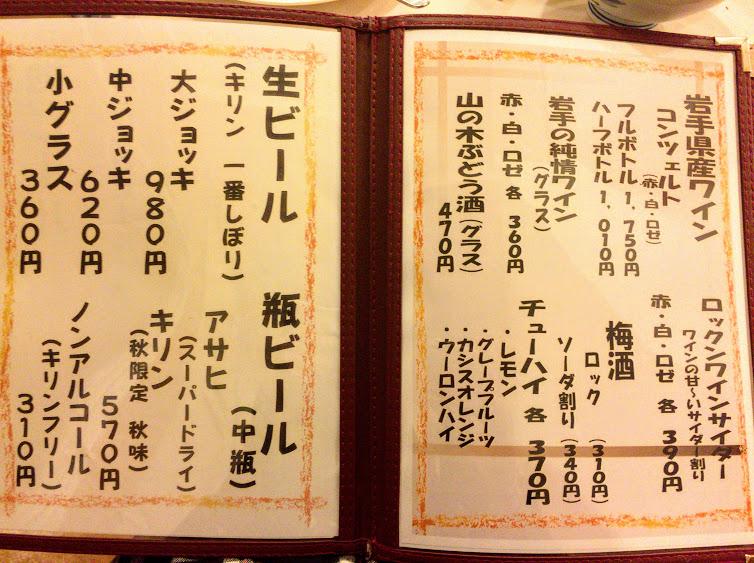 岩手県産ワイン
コンツェルト
(赤・白・ロゼ)
フルボトル 1,750円
ハーフボトル 1,010円
岩手の純情ワイン
(グラス)
赤・白・ロゼ 各 360円
山の木ぶどう酒(グラス)
470円
ロックンワインサイダー
ワインの甘〜いサイダー割り
赤・白・ロゼ 各 390円
梅酒
ロック (310円)
ソーダ割り (340円)
チューハイ 各 370円
・レモン
・グレープフルーツ
・カシスオレンジ
・ウーロンハイ
生ビール
(キリン 一番しぼり)
大ジョッキ
980円
中ジョッキ
620円
小グラス
360円
瓶ビール
(中瓶)
アサヒ
(スーパードライ)
キリン
(秋限定 秋味)
570円
ノンアルコール
(キリンフリー)
310円